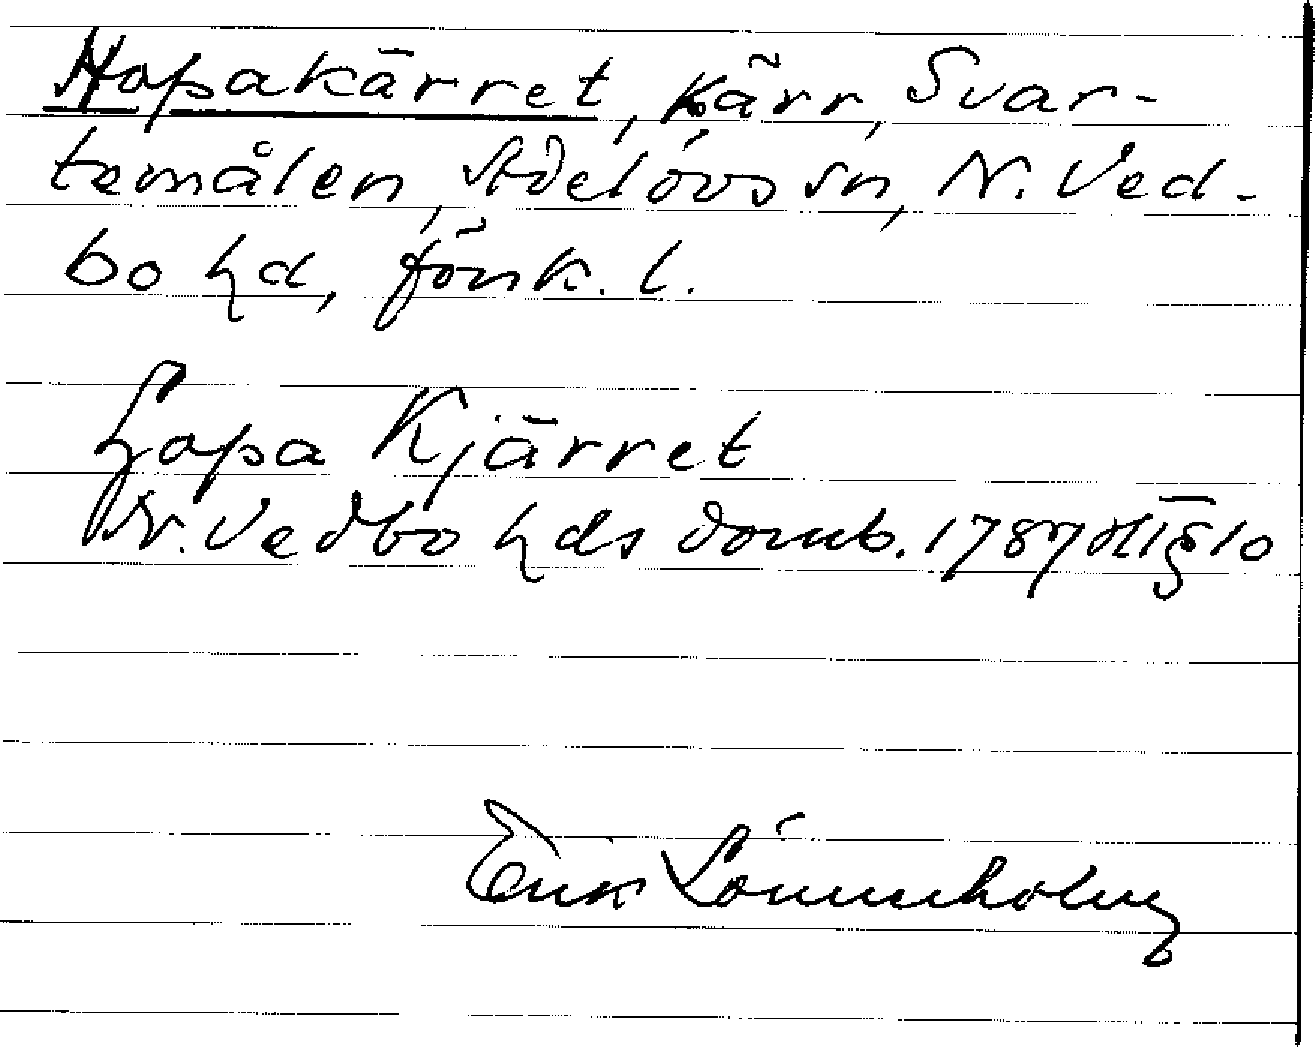 Hopakärret, kärr, Svar-
temålen, Adelövs sn, N. Ved-
bo hd, Jönk. l.
Hopa Kjärret
N. Vedbo hds domb. 1787 HT § 10
Erik Lönnerholm